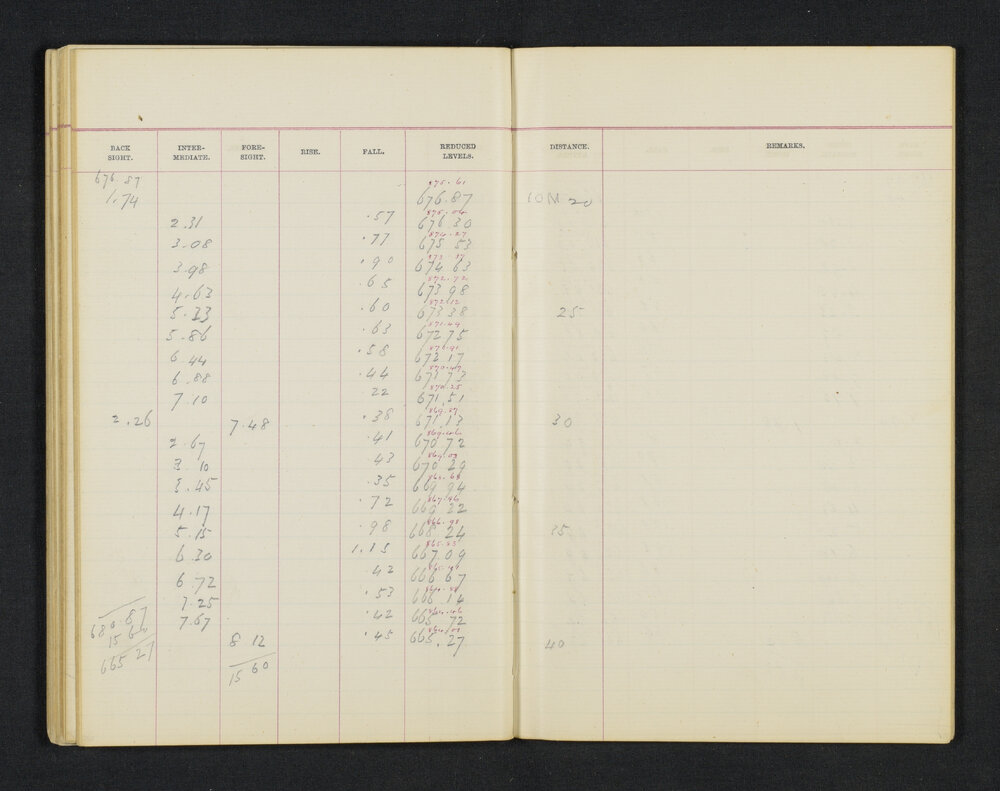 BACK SIGHT. INTER- MEDIATE. FORE- SIGHT. RISE. FALL. REDUCED LEVELS. DISTANCE. REMARKS.
676.87 875.61
1.74 676.87 10M 20
875.04
2.31 .57 676 30
874.27
3.08 .77 675 53
3.98 .90 674 63
872.72
4.63 .65 673 98
872.12
5.23 .60 673 38 25
871.49
5.86 .63 672 75
870.91
6.44 .58 672 17
870.47
6.88 .44 671 73
870.25
7.10 22 671.51
869.87
2.26 7.48 .38 671 13 30
869.46
2.67 .41 670 72
869.03
3 10 43 670 29
868.68
3.45 .35 669 94
867.96
4.17 .72 669 22
866.98
5.15 .98 668 24 35
6 30 1.15 667 09
6.72 42 666 67
7.25 .53 666 14
864.46
7.67 .42 665 72
680 87
15 60 8 12 .45 665.27 40
665 27 15 60